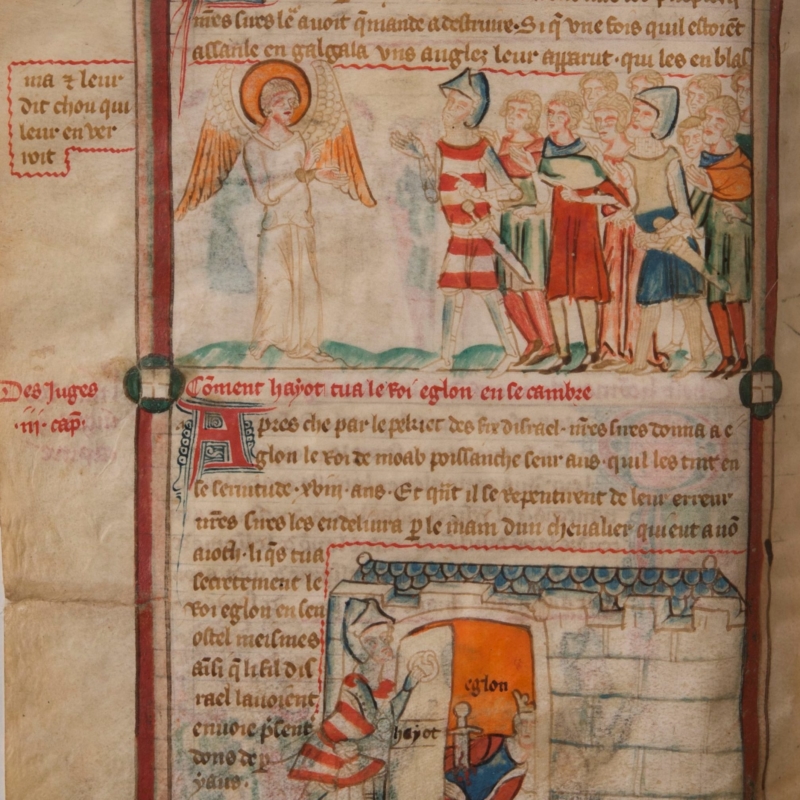 n̄res sires le᷑ auoit q̄mande a destruire. Si q̄ vne fois quil estoiēt
assanle en galgala vns angles leur aparut. qui les en blas
ma ⁊ leur
dit chou qui
leur en ver
roit
Des Juges
.iij. cap.
Cōment hayot tua le Roi eglon en se cambre
Apres che par le pechiet des fix disrael. n̄res sires donna a e
glon le Roi de moab poissanche seur aus. quil les tint en
se seruitude .xviij. ans. Et q̄nt il se repentirent de leur erreur
n̄res sires les en deliura p̱ le main dun cheualier qui eut a nō
aioth. li q̄s tua
secretement le
Roi eglon en sen
ostel meismes
ausi q̄ li fil dis
rael lauoient
enuoie p̄sent
dons de p
eglon
hayot